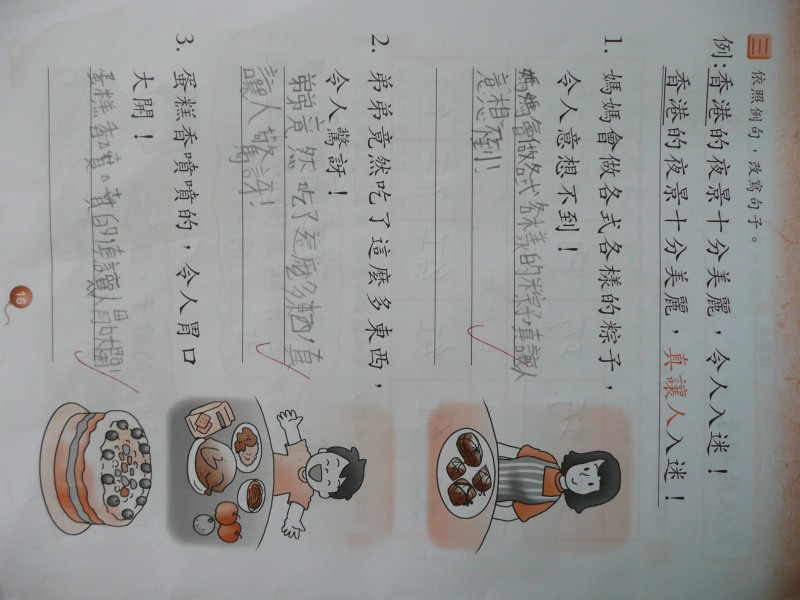 三 依照例句，改寫句子。
例：香港的夜景十分美麗，令人入迷！
香港的夜景十分美麗，真讓人入迷！
1. 媽媽會做各式各樣的粽子，
令人意想不到！
媽媽會做各式各樣的粽子，真讓人
意想不到！
2. 弟弟竟然吃了這麼多東西，
令人驚訝！
弟弟竟然吃了這麼多東西，真
讓人驚訝！
3. 蛋糕香噴噴的，令人胃口
大開！
蛋糕香噴噴的，真讓人胃口大開！
16